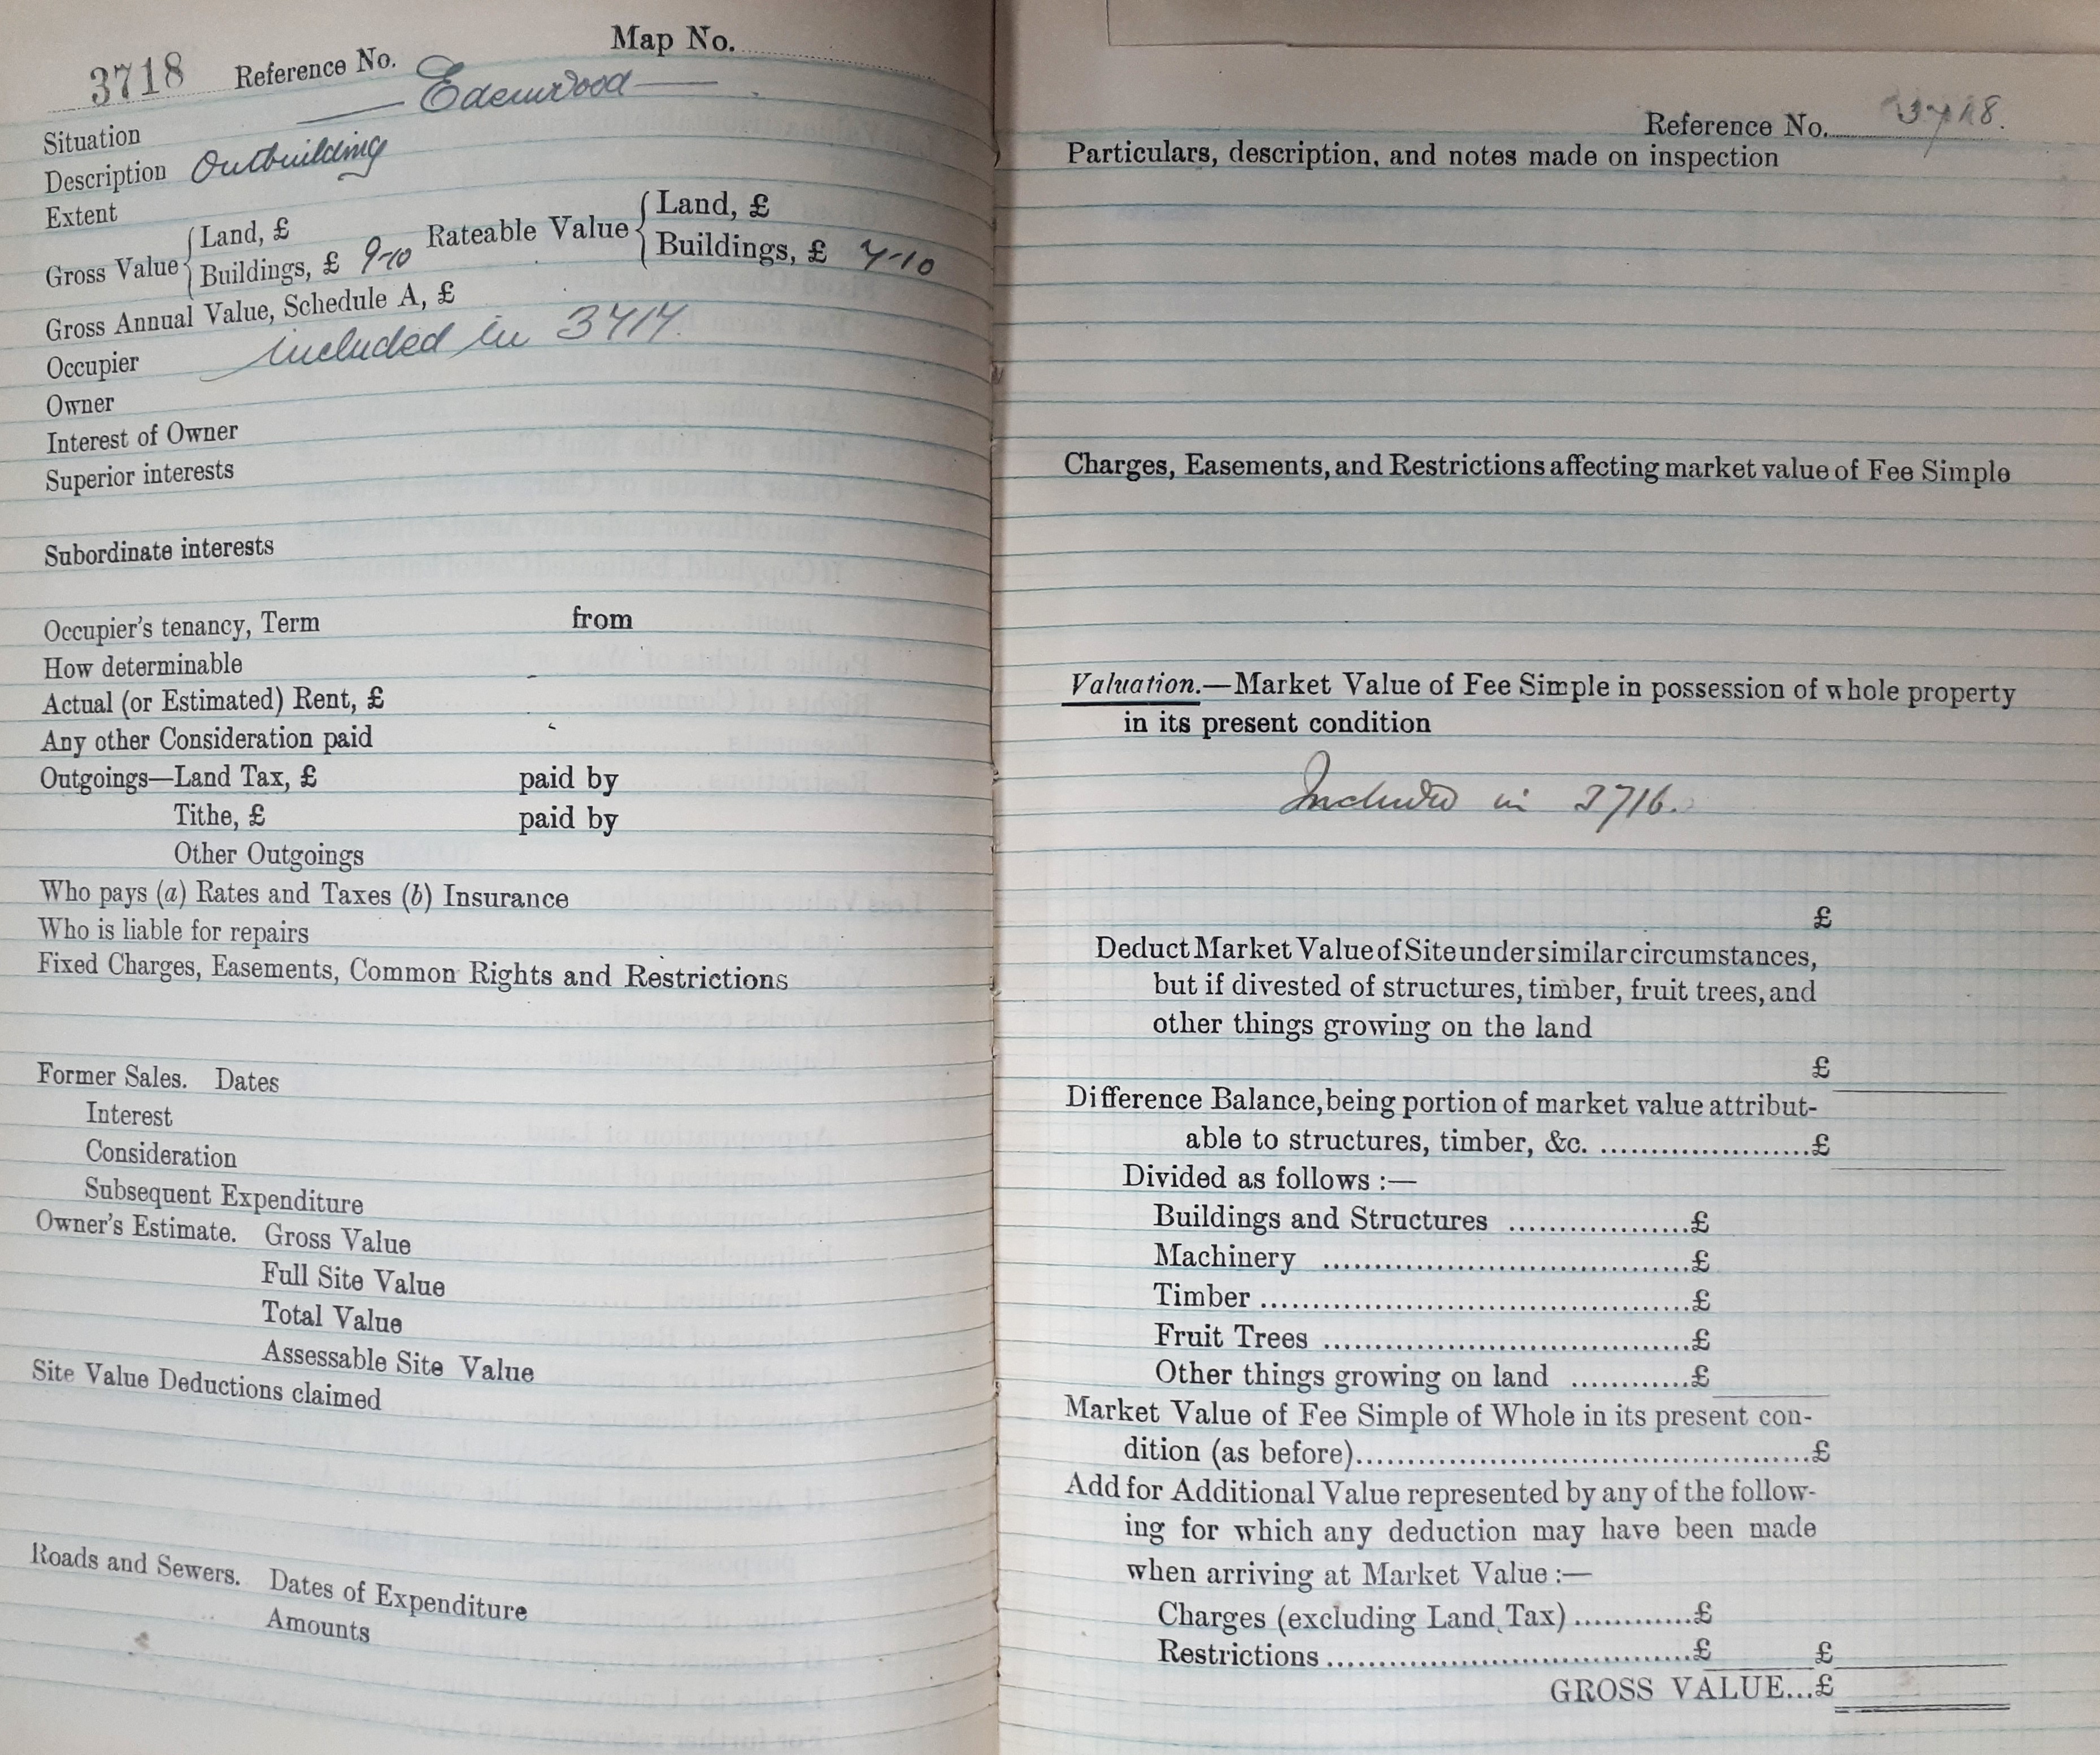 Map No.
3718 Reference No.
Situation — Edenwood —
Description Outbuilding
Extent
Gross Value { Land, £ Rateable Value { Land, £
Buildings, £ 9-10 Buildings, £ 7-10
Gross Annual Value, Schedule A, £
Occupier included in 3717.
Owner
Interest of Owner
Superior interests
Subordinate interests
Occupier's tenancy, Term from
How determinable
Actual (or Estimated) Rent, £
Any other Consideration paid
Outgoings—Land Tax, £ paid by
Tithe, £ paid by
Other Outgoings
Who pays (a) Rates and Taxes (b) Insurance
Who is liable for repairs
Fixed Charges, Easements, Common Rights and Restrictions
Former Sales. Dates
Interest
Consideration
Subsequent Expenditure
Owner's Estimate. Gross Value
Full Site Value
Total Value
Assessable Site Value
Site Value Deductions claimed
Roads and Sewers. Dates of Expenditure
Amounts
Reference No. 3718.
Particulars, description, and notes made on inspection
Charges, Easements, and Restrictions affecting market value of Fee Simple
Valuation.—Market Value of Fee Simple in possession of whole property
in its present condition
Included in 3716.
£
Deduct Market Value of Site under similar circumstances,
but if divested of structures, timber, fruit trees, and
other things growing on the land
£
Difference Balance, being portion of market value attribut-
able to structures, timber, &c. ......................£
Divided as follows :—
Buildings and Structures ..................£
Machinery .....................................£
Timber ...........................................£
Fruit Trees .....................................£
Other things growing on land ............£
Market Value of Fee Simple of Whole in its present con-
dition (as before)..............................................£
Add for Additional Value represented by any of the follow-
ing for which any deduction may have been made
when arriving at Market Value :—
Charges (excluding Land Tax) ............£
Restrictions.....................................£ £
GROSS VALUE...£